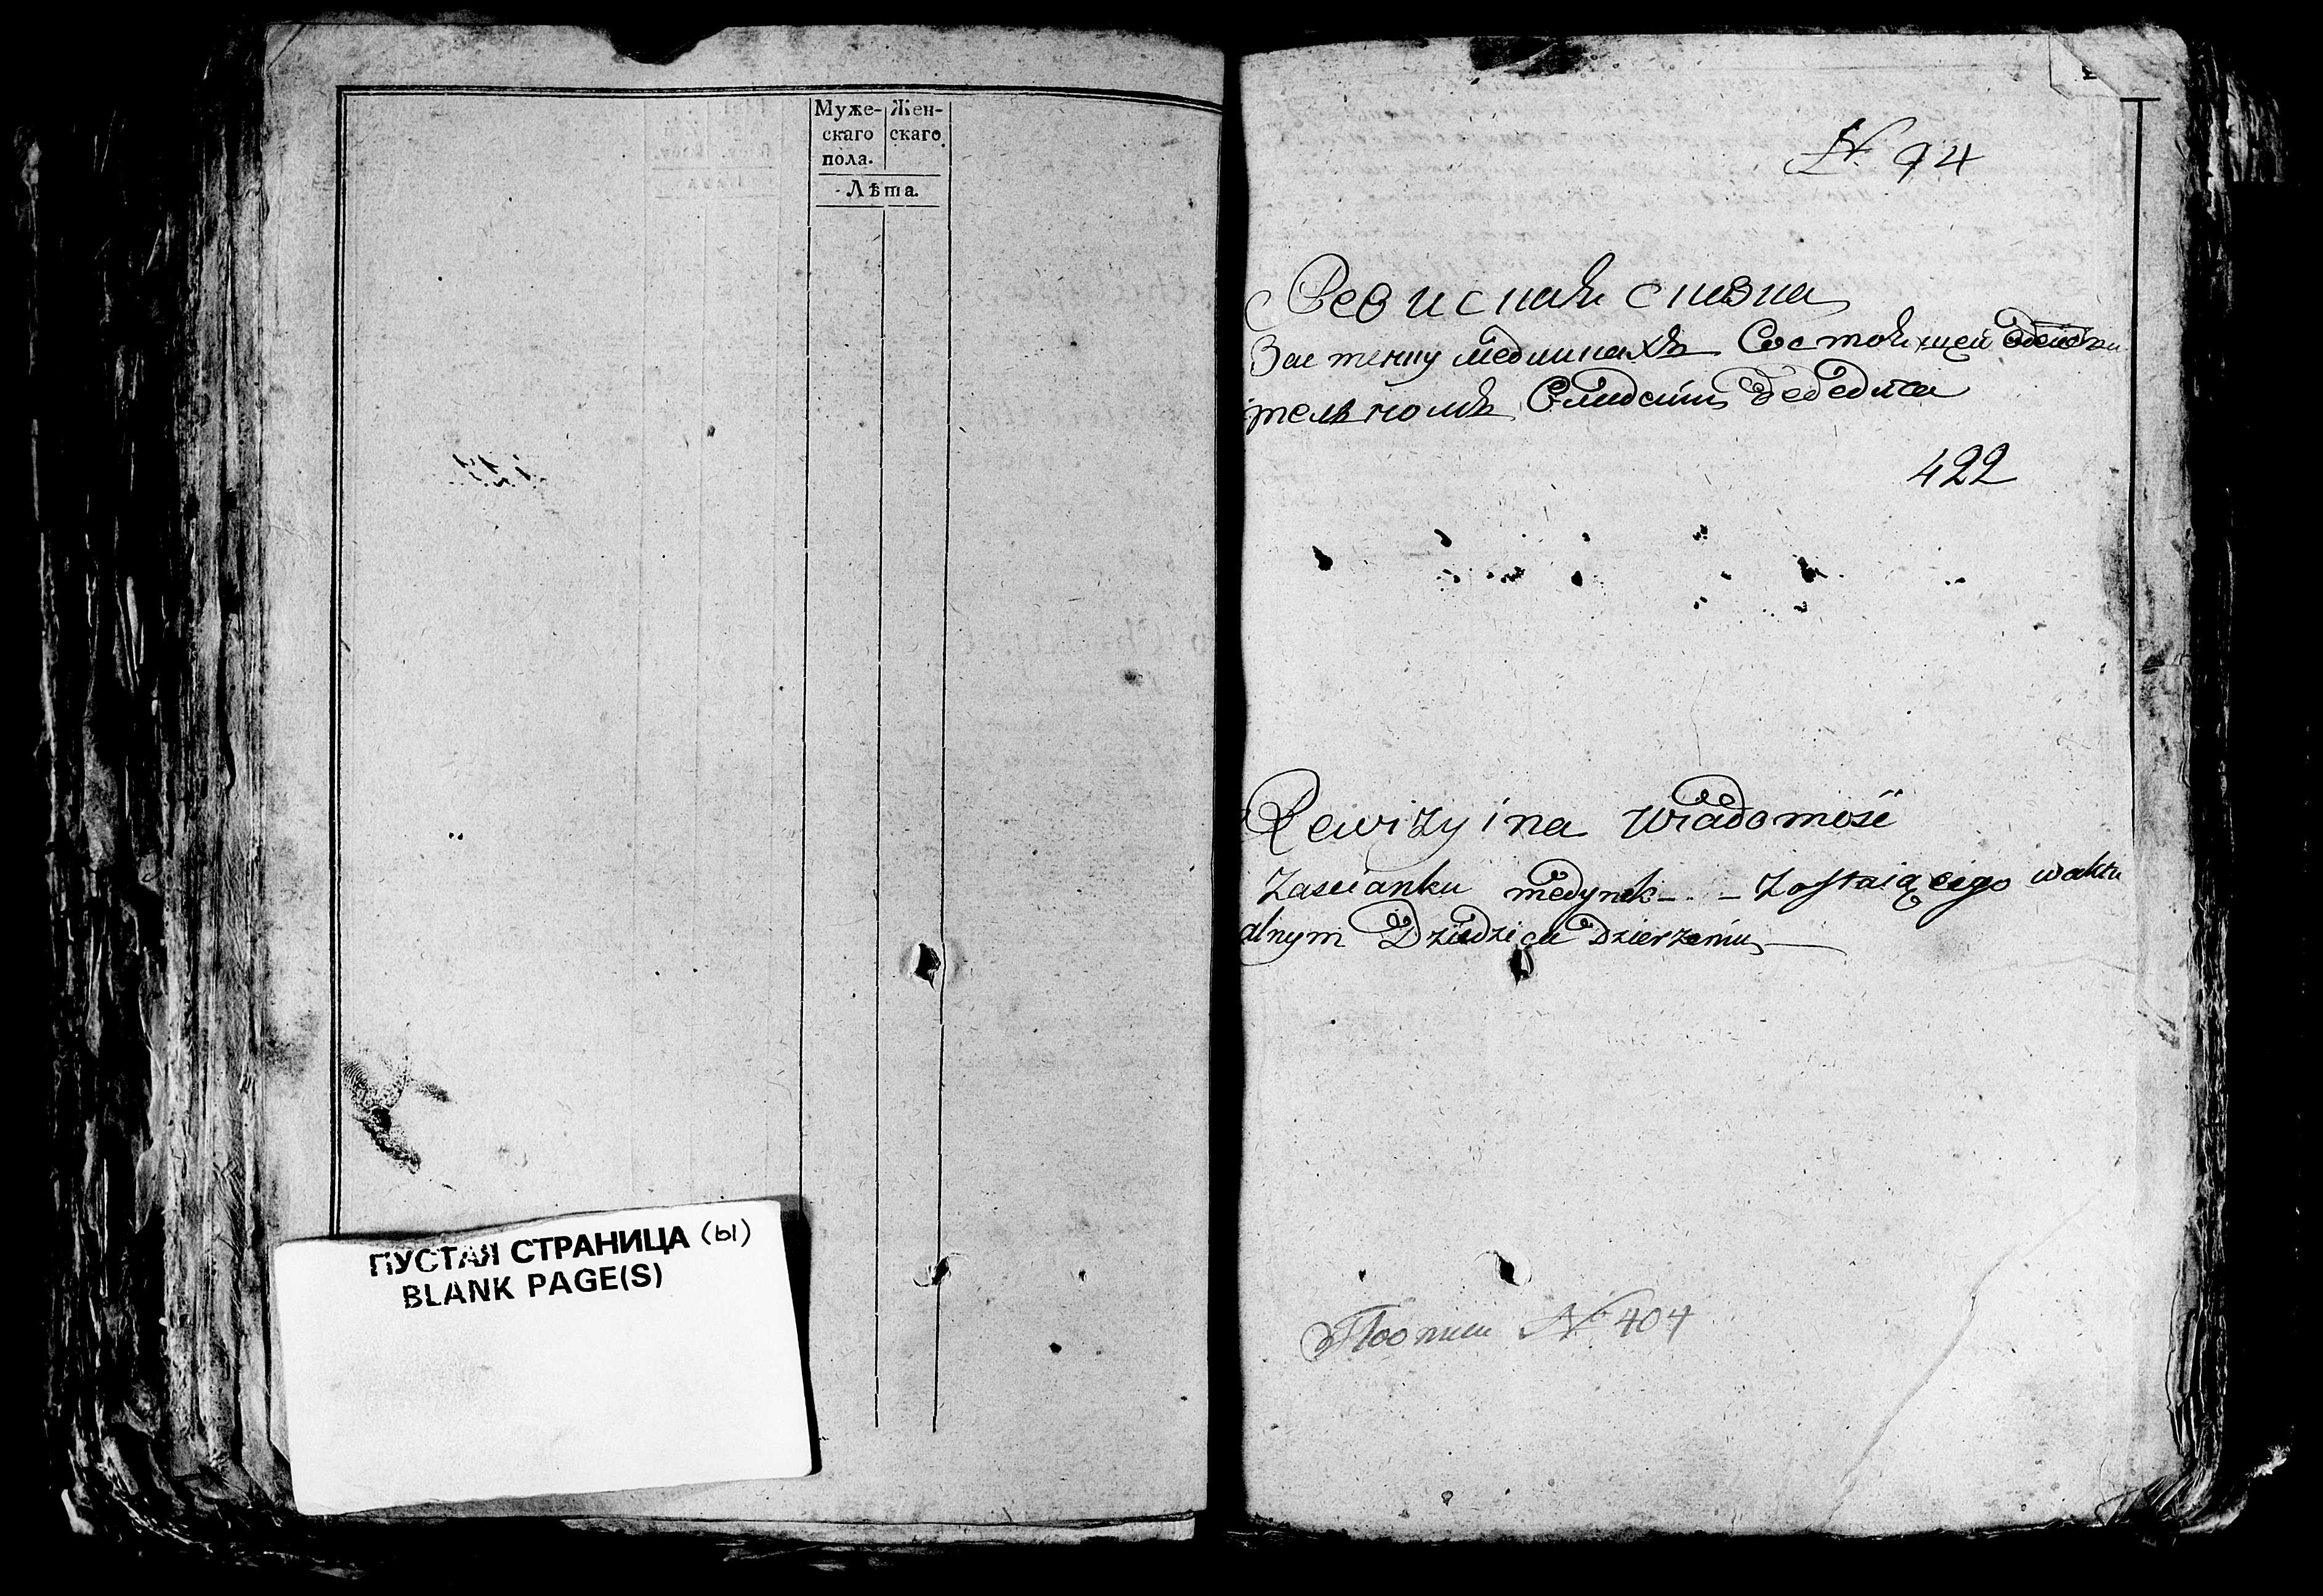 Муже-
скаго
пола.
Жен-
скаго
Лѣта.
ПУСТАЯ СТРАНИЦА (ы)
BLANK PAGE(S)
N 94
Ревиснай сказка
Застенку медынахъ Состоящей вдействи
телномъ
422
Rewizyina Wiadomość
Zascianku medynek - - Zostaiącego waktu
alnym Dziedzicu Dzierzeniu
По описи N 404